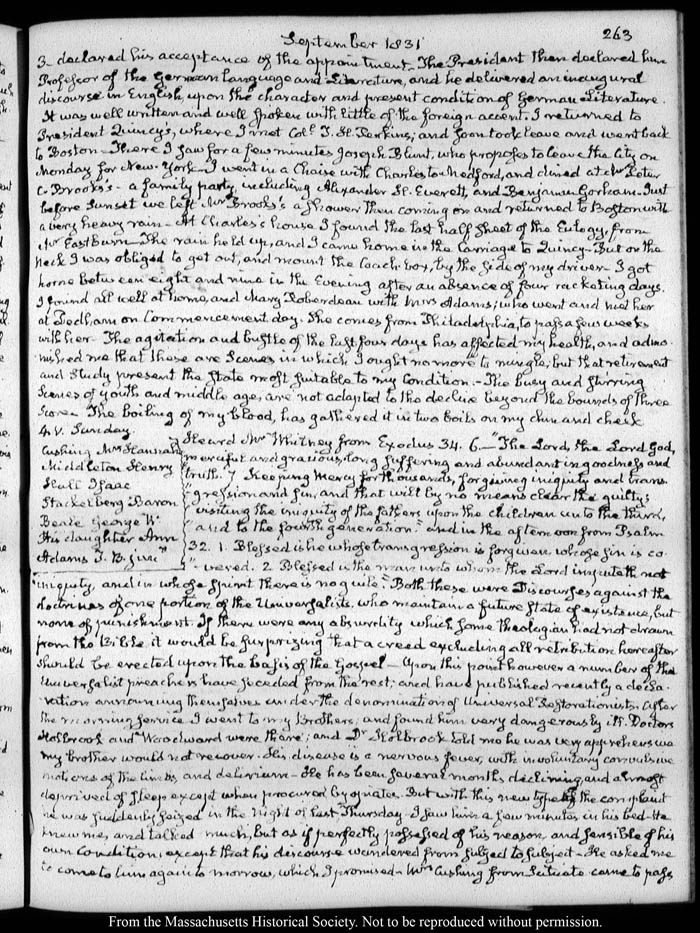 September 1831
263
3- declared his acceptance of the appointment. The President then declared him
Professor of the German Language and Literature, and he delivered an inaugural
discourse in English, upon the character and present condition of German Literature.
It was well written and well spoken with little of the foreign accent. I returned to
President Quincy's, where I met Colo. T. H. Perkins; and soon took leave and went back
to Boston. There I saw for a few minutes Joseph Blunt, who proposes to leave the City on
Monday for New-York. I went in a Chaise with Charles to Medford, and dined at Mr Peter
C. Brooks's - a family party, including Alexander H. Everett, and Benjamin Gorham. Just
before Sunset we left Mr Brooks's a shower then coming on and returned to Boston with
a very heavy rain. At Charles's house I found the last half sheet of the Eulogy, from
Mr Eastburn. The rain held up, and I came home in the Carriage to Quincy. But on the
Neck I was obliged to get out, and mount the Coach-box, by the side of my driver. I got
home between eight and nine in the Evening after an absence of four racketing days.
I found all well at home, and Mary Roberdeau with Mrs Adams; who went and met her
at Dedham on Commencement day. She comes from Philadelphia, to pass a few weeks
with her. The agitation and bustle of the last four days has affected my health, and admo-
nished me that these are Scenes in which I ought no more to mingle, but that retirement
and Study present the State most suitable to my Condition. The busy and stirring
Scenes of youth and middle age, are not adapted to the decline beyond the bounds of three
Score. The boiling of my blood, has gathered it in two boils on my chin and cheek
4. V. Sunday.
Cushing Mrs Hannah
Middleton Henry
Hull Isaac
Stackelberg Baron
Beale George W.
His daughter Ann
Adams T. B. junr
Heard Mr Whitney from Exodus 34. 6. The Lord, the Lord God,
merciful and gracious, long suffering and abundant in goodness and
truth. 7 Keeping Mercy for thousands, forgiving iniquity and trans-
gression and sin, and that will by no means clear the guilty;
visiting the iniquity of the fathers upon the children unto the third,
and to the fourth generation" and in the afternoon from Psalm
32. 1. Blessed is he whose transgression is forgiven whose sin is co-
"vered. 2 Blessed is the man unto whom the Lord imputeth not
iniquity, and in whose spirit there is no guile." Both these were Discourses against the
doctrines of one portion of the Universalists, who maintain a future State of existence, but
none of punishment. If there were any absurdity which some theologian had not drawn
from the Bible, it would be surprizing that a creed excluding all retribution hereafter
should be erected upon the basis of the Gospel. Upon this point however a number of the
Universalist preachers have seceded from the rest, and have published recently a decla-
ration announcing themselves under the denomination of Universal Restorationists. After
the morning service I went to my Brothers, and found him very dangerously ill. Doctors
Holbrook and Woodward were there; and Dr Holbrook told me he was very apprehensive
my brother would not recover. His disease is a nervous fever, with involuntary convulsive
motions of the limbs, and delirium. He has been several months declining, and almost
deprived of sleep except when procured by opiates. But with this new type of the complaint
he was suddenly seized in the night of last Thursday. I saw him a few minutes in his bed. He
knew me, and talked much, but as if perfectly possessed of his reason, and sensible of his
own Condition, except that his discourse wandered from subject to subject. He asked me
to come to him again tomorrow, which I promised. Mrs Cushing from Scituate came to pass
From the Massachusetts Historical Society. Not to be reproduced without permission.